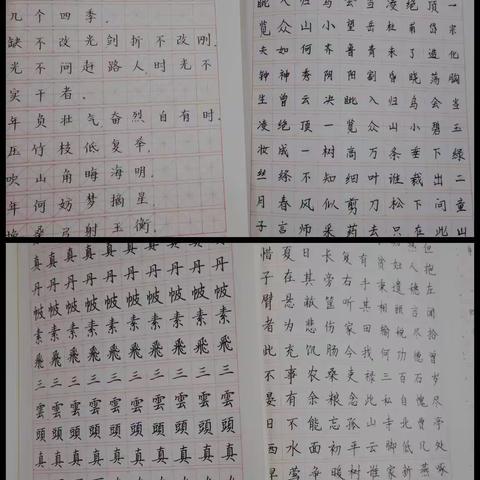 几个四季.
缺不改光剑折不改刚.
光不问赶路人时光不
实干者.
年负壮气奋烈自有时.
压竹枝低复举.
吹山角晦海明.
年何妨梦摘星.
挽桑弓射玉衡.
眺入归鸟会当凌绝顶一
览众山小望岳杜甫岱宗
夫如何齐鲁青未了造化
钟神秀阴阳割昏晓荡胸
生曾云决眦入归鸟会当
凌绝顶一览众山小碧玉
妆成一树高万条垂下绿
丝绦不知细叶谁裁出二
月春风似剪刀松下问童
子言师采药去只在此山
真真真真真真真真真
丹丹丹丹丹丹丹丹丹
帔帔帔帔帔帔帔帔帔
素素素素素素素素素
飛飛飛飛飛飛飛飛飛
三三三三三三三三三
雲雲雲雲雲雲雲雲雲
頭頭頭頭頭頭頭頭頭
真真真真真真真真真
但
惜夏日长复有贫妇人抱
子在其旁右手秉遗穗左
臂悬敝筐听其相顾言闻
者为悲伤家田输税尽拾
此充饥肠今我何功德曾
不事农桑吏禄三百石岁
晏有余粮念此私自愧尽
日不能忘孤山寺北贾亭
西水面初平云脚低几处
早莺争暖树谁家新燕啄